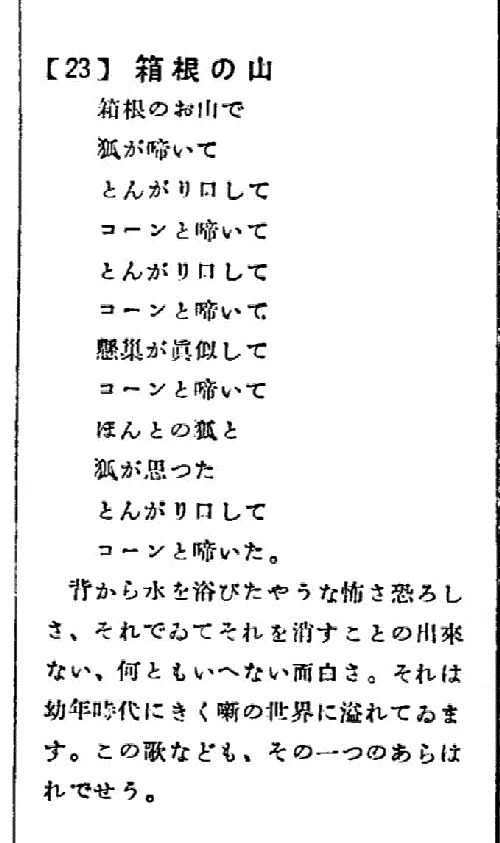 【23】 箱根の山
箱根のお山で
狐が啼いて
とんがり口して
コーンと啼いて
とんがり口して
コーンと啼いて
懸巣が眞似して
コーンと啼いて
ほんとの狐と
狐が思つた
とんがり口して
コーンと啼いた。
背から水を浴びたやうな怖さ恐ろし
さ、それでゐてそれを消すことの出來
ない、何ともいへない面白さ。それは
幼年時代にきく噺の世界に溢れてゐま
す。この歌なども、その一つのあらは
れでせう。